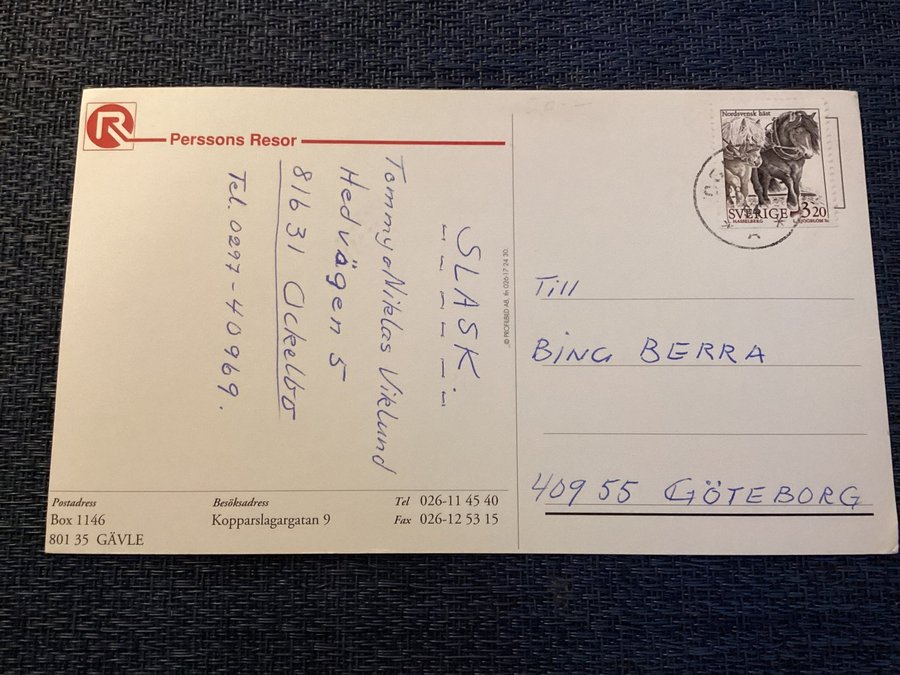 R
Perssons Resor
SLASK.
Tommy o Niklas Viklund
Hedvägen 5
816 31 Ockelbo
Tel. 0297-40969.
Postadress
Box 1146
801 35 GÄVLE
Besöksadress
Kopparslagargatan 9
Tel 026-11 45 40
Fax 026-12 53 15
© PROFILBILD AB, tfn 026-17 24 30.
Nordsvensk häst
SVERIGE 3.20
L. SJÖÖBLOM SC
Till
BING BERRA
409 55 GÖTEBORG